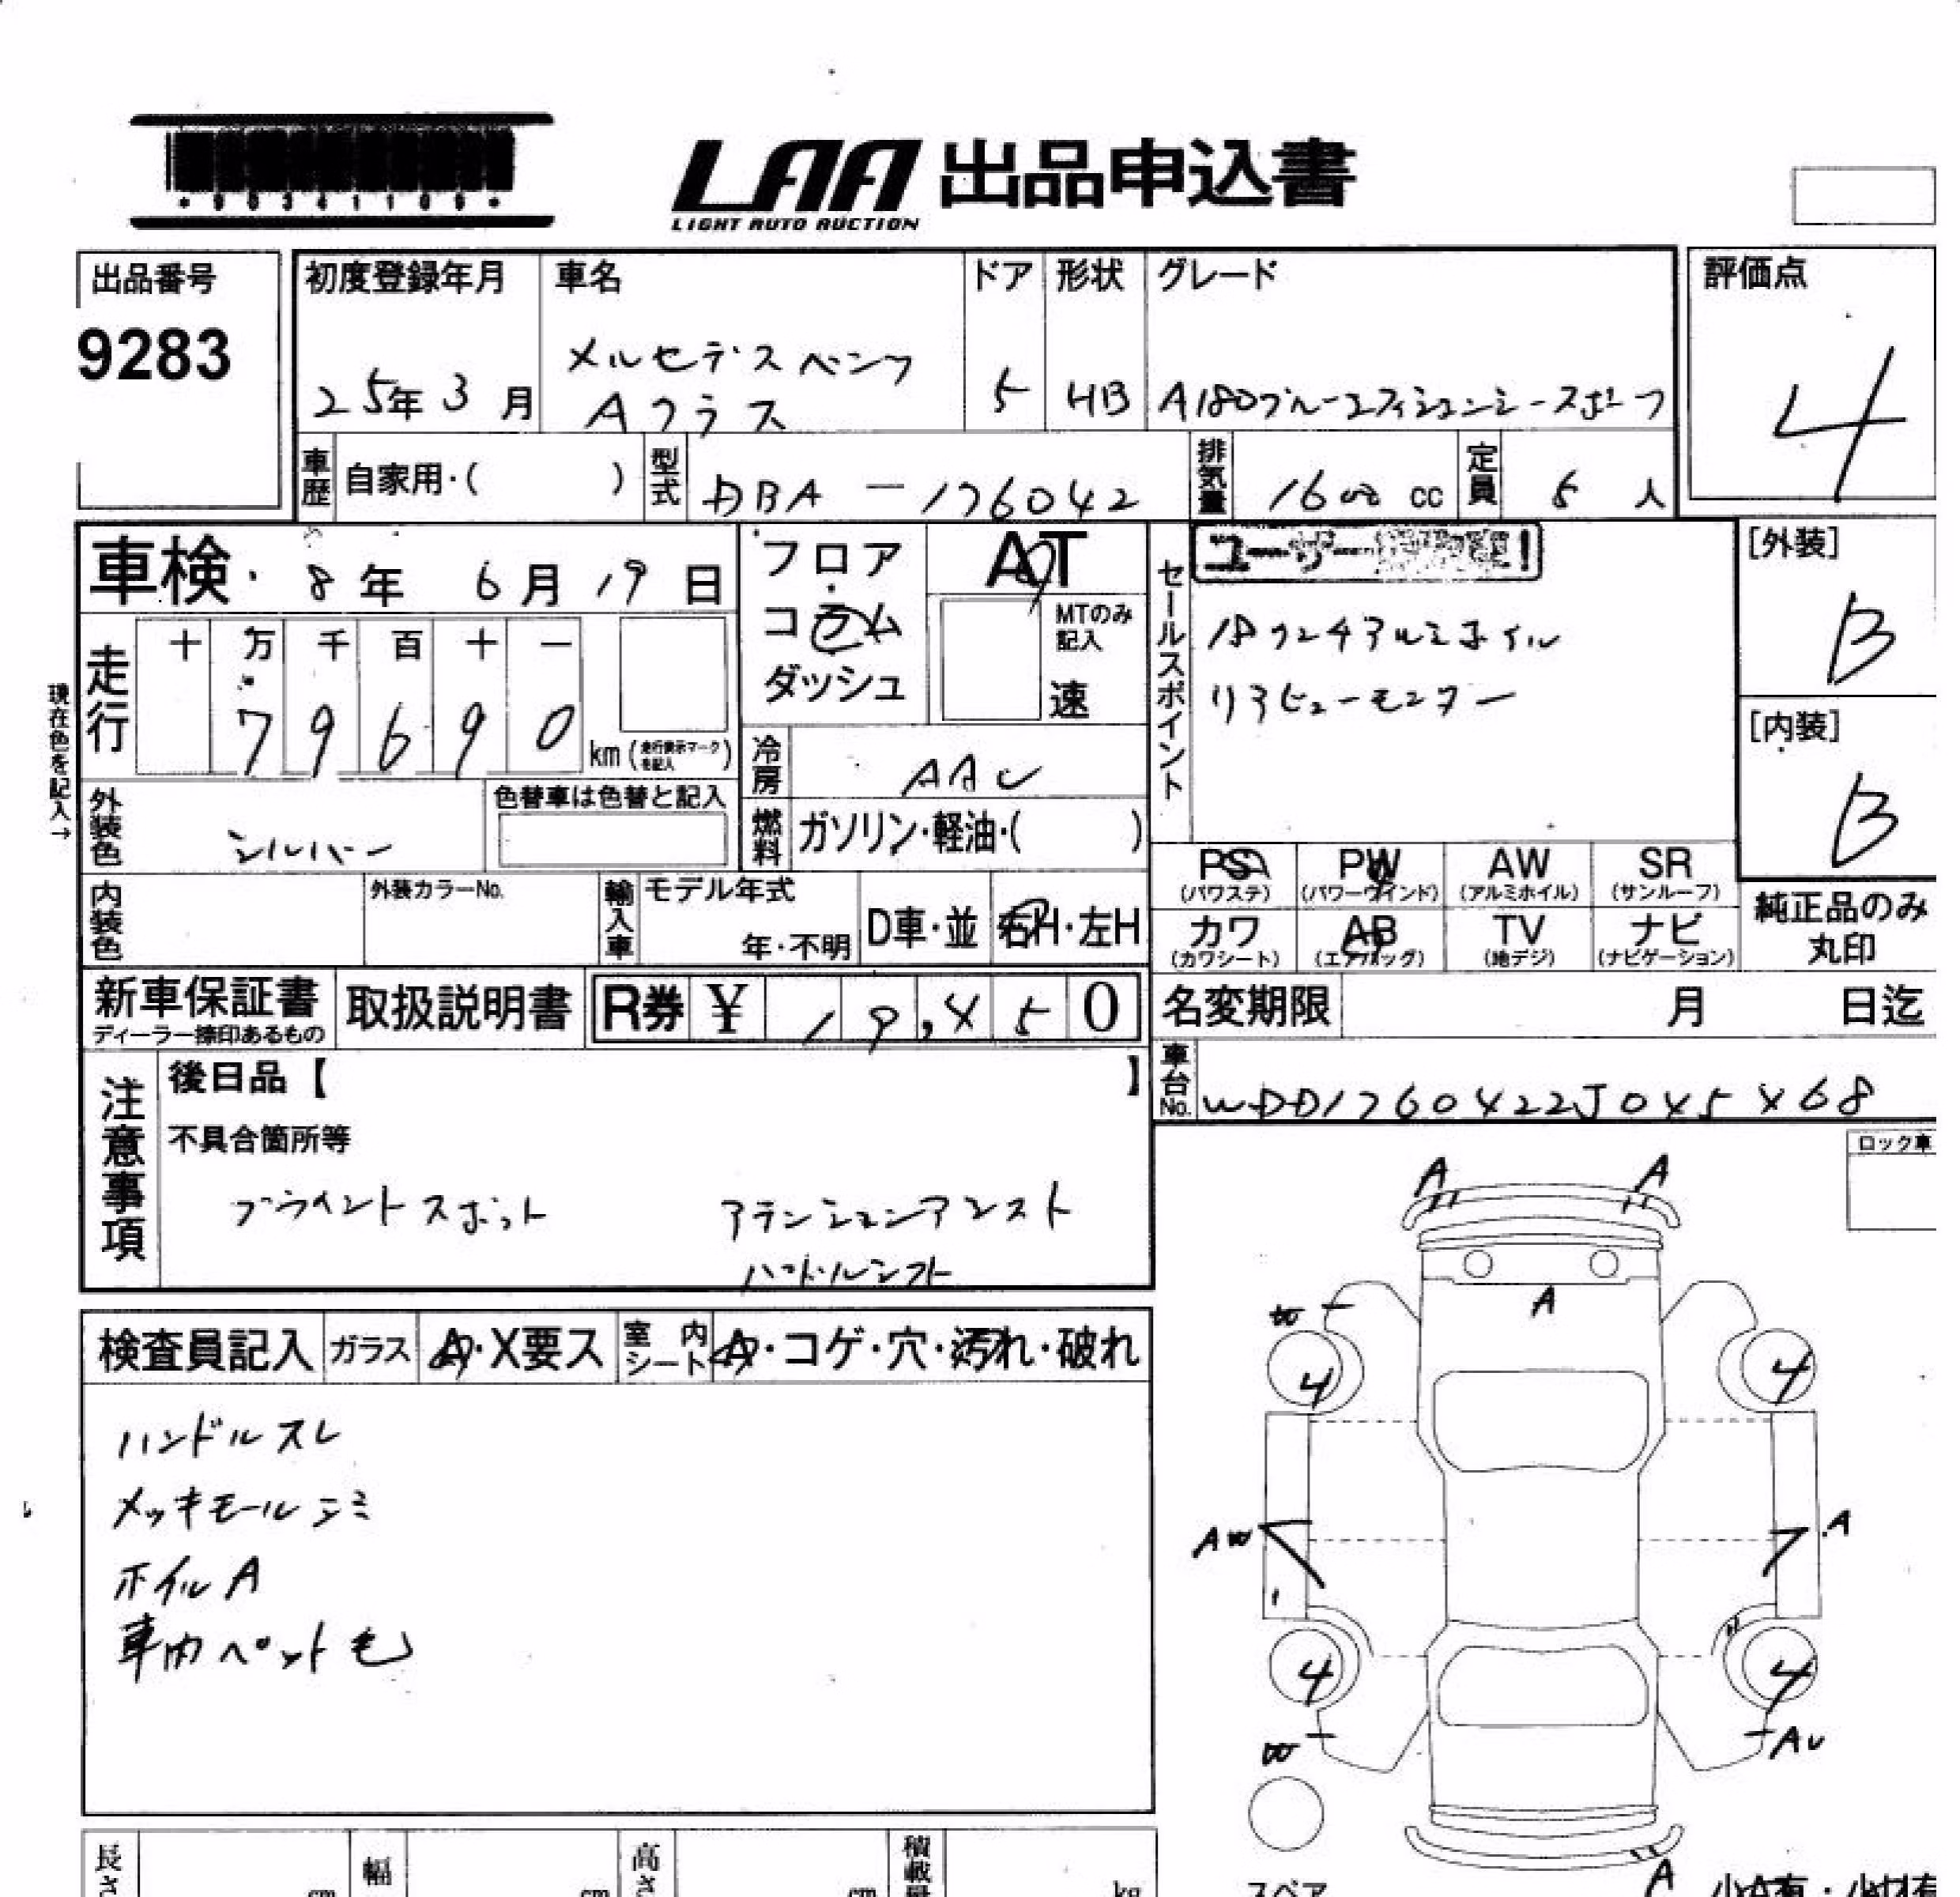 *90341109*
LAA 出品申込書
LIGHT AUTO AUCTION
出品番号
9283
初度登録年月
25年3月
車名
メルセデスベンツ
Aクラス
ドア
5
形状
HB
グレード
A180ブルーエフィシェンシースポーツ
評価点
4
車歴
自家用・( )
型式
DBA-176042
排気量
1600 cc
定員
5 人
車検 8年 6月 19日
フロア
コラム
ダッシュ
AT
MTのみ
記入
速
セールスポイント
ユーザー
18インチアルミホイル
リアビューモニター
[外装]
B
[内装]
B
純正品のみ
丸印
現在色を記入→
走行
十 万 千 百 十 一
7 9 6 9 0
km (走行表示マークを記入)
冷房
AAC
燃料
ガソリン・軽油・( )
外装色
シルバー
色替車は色替と記入
内装色
外装カラーNo.
輸入車
モデル年式
年・不明
D車・並
右H・左H
PS
(パワステ)
PW
(パワーウインド)
AW
(アルミホイル)
SR
(サンルーフ)
カワ
(カワシート)
AB
(エアバッグ)
TV
(地デジ)
ナビ
(ナビゲーション)
新車保証書
ディーラー捺印あるもの
取扱説明書
R券 ¥ 19,450
名変期限 月 日迄
車台No.
WDD1760422J045468
注意事項
後日品【 】
不具合箇所等
ブラインドスポット アテンションアシスト
ハンドルシフト
ロック車
検査員記入
ガラス
A・X要ス
室内シート
A・コゲ・穴・汚れ・破れ
ハンドルスレ
メッキモールシミ
ホイルA
車内ペット毛
A A
A
W
4 4
AW A
4 4
W AU
A
スペア
小A有・小U有
長さ cm
幅 cm
高さ cm
積載量 kg